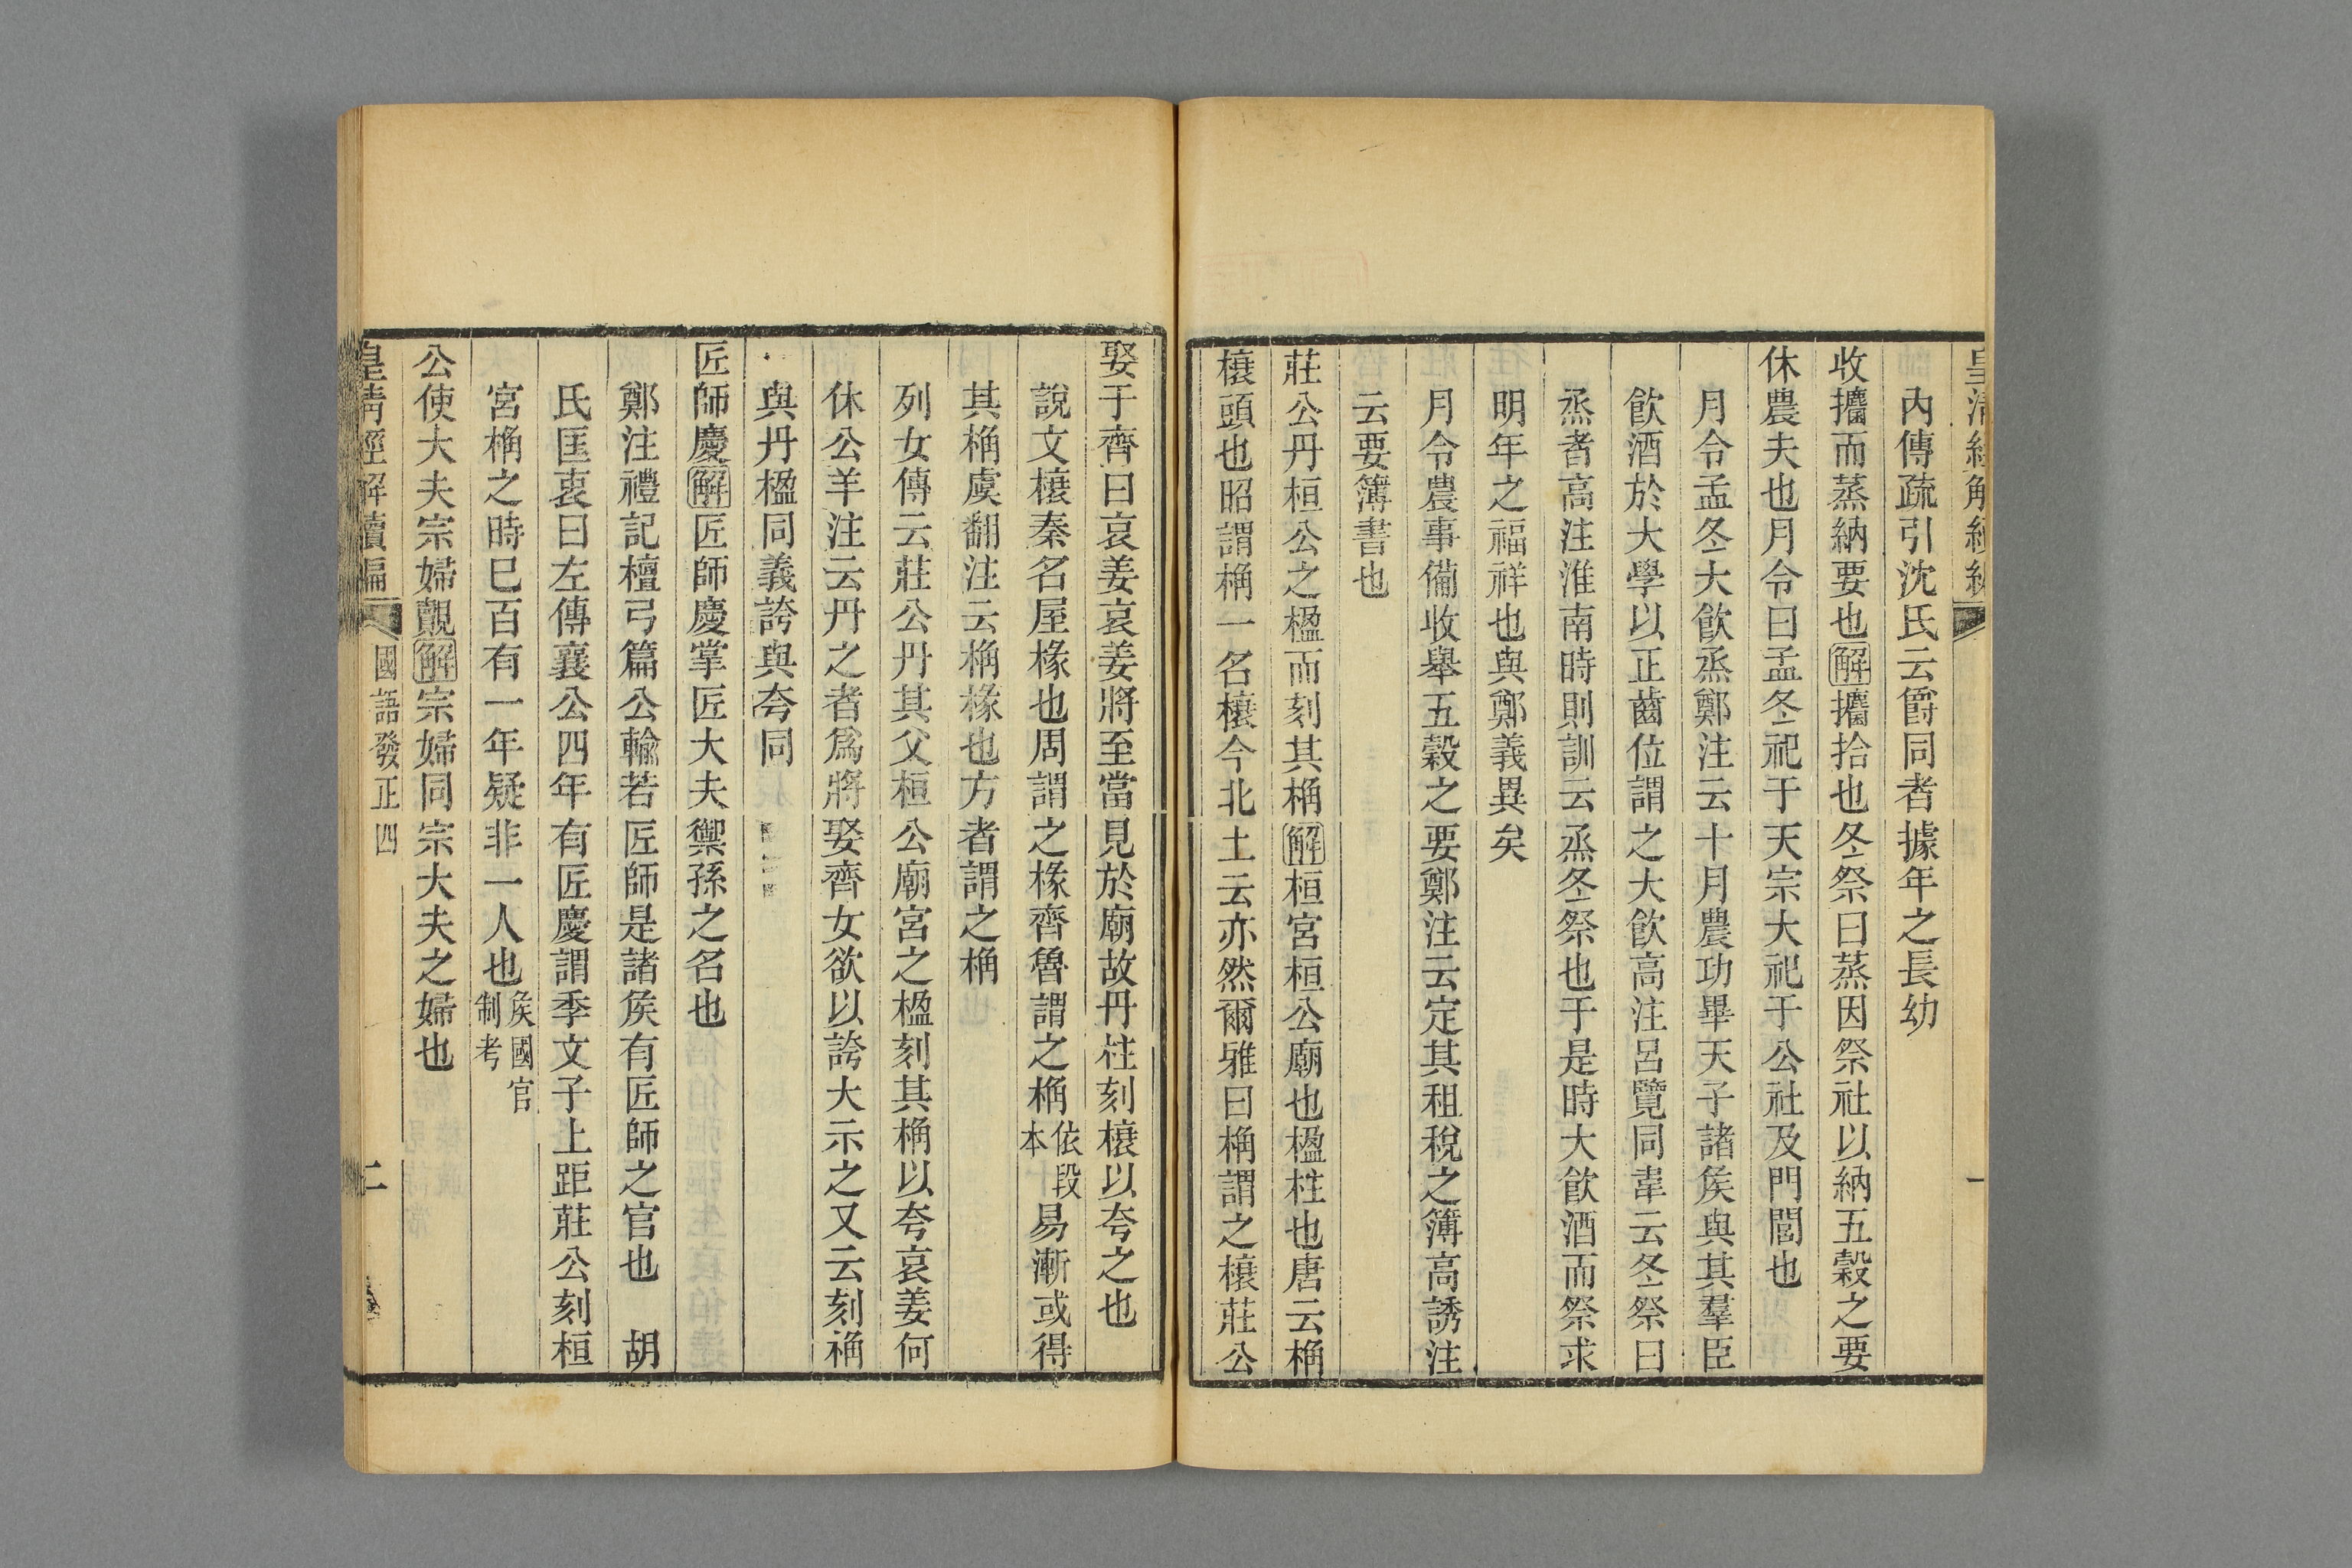 皇清經解續編
一
內傳疏引沈氏云爵同者據年之長幼
收攟而蒸納要也解攟拾也冬祭曰蒸因祭社以納五穀之要
休農夫也月令曰孟冬祀于天宗大祀于公社及門閭也
月令孟冬大飮烝鄭注云十月農功畢天子諸矦與其羣臣
飮酒於大學以正齒位謂之大飮高注呂覽同韋云冬祭曰
烝者高注淮南時則訓云烝冬祭也于是時大飮酒而祭求
明年之福祥也與鄭義異矣
月令農事備收舉五穀之要鄭注云定其租稅之簿高誘注
云要簿書也
莊公丹桓公之楹而刻其桷解桓宮桓公廟也楹柱也唐云桷
榱頭也昭謂桷一名榱今北土云亦然爾雅曰桷謂之榱莊公
娶于齊曰哀姜哀姜將至當見於廟故丹柱刻榱以夸之也
說文榱秦名屋椽也周謂之椽齊魯謂之桷依段本易漸或得
其桷虞翻注云桷椽也方者謂之桷
列女傳云莊公丹其父桓公廟宮之楹刻其桷以夸哀姜何
休公羊注云丹之者爲將娶齊女欲以誇大示之又云刻桷
與丹楹同義誇與夸同
匠師慶解匠師慶掌匠大夫禦孫之名也
鄭注禮記檀弓篇公輸若匠師是諸矦有匠師之官也　胡
氏匡衷曰左傳襄公四年有匠慶謂季文子上距莊公刻桓
宮桷之時巳百有一年疑非一人也矦國官制考
公使大夫宗婦覿解宗婦同宗大夫之婦也
皇清經解續編
國語發正四
二